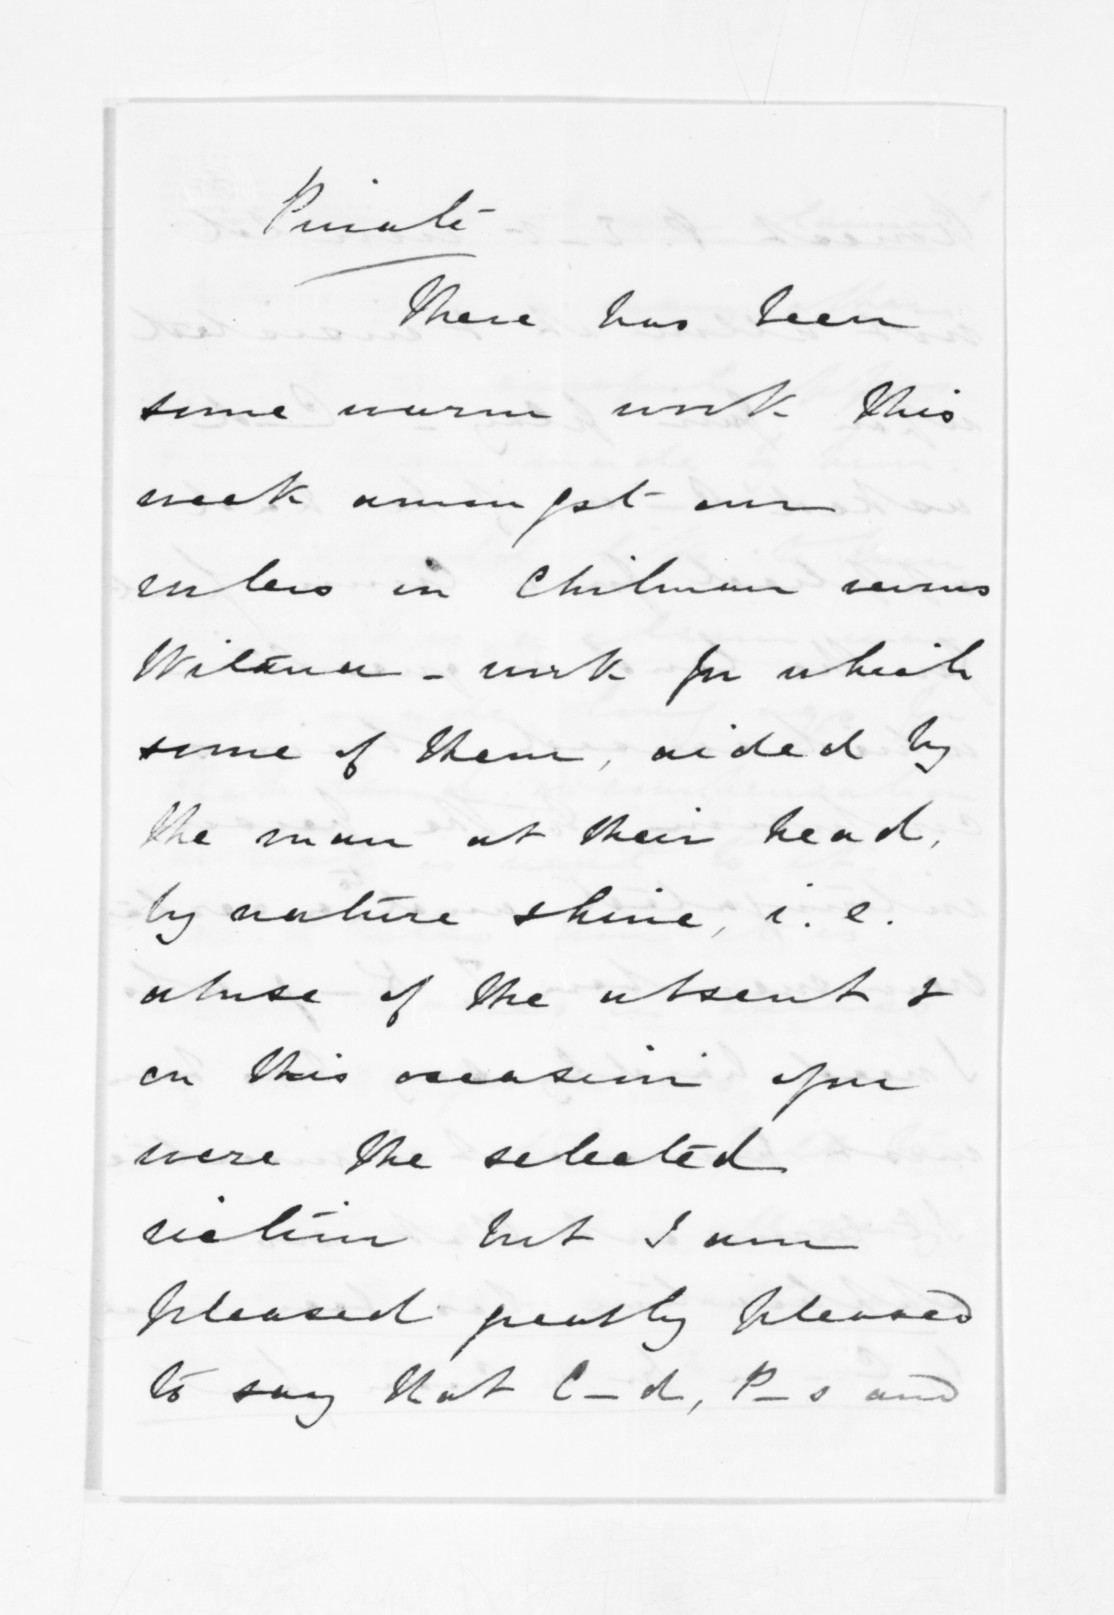 Private
There has been
some warm work this
week amongst our
rulers in Chilman versus
Witana - work for which
some of them, aided by
the man at their head,
by nature shine, i.e.
abuse of the absent &
on this occasion you
were the selected
victim but I am
pleased greatly pleased
to say that C-d, P-s and